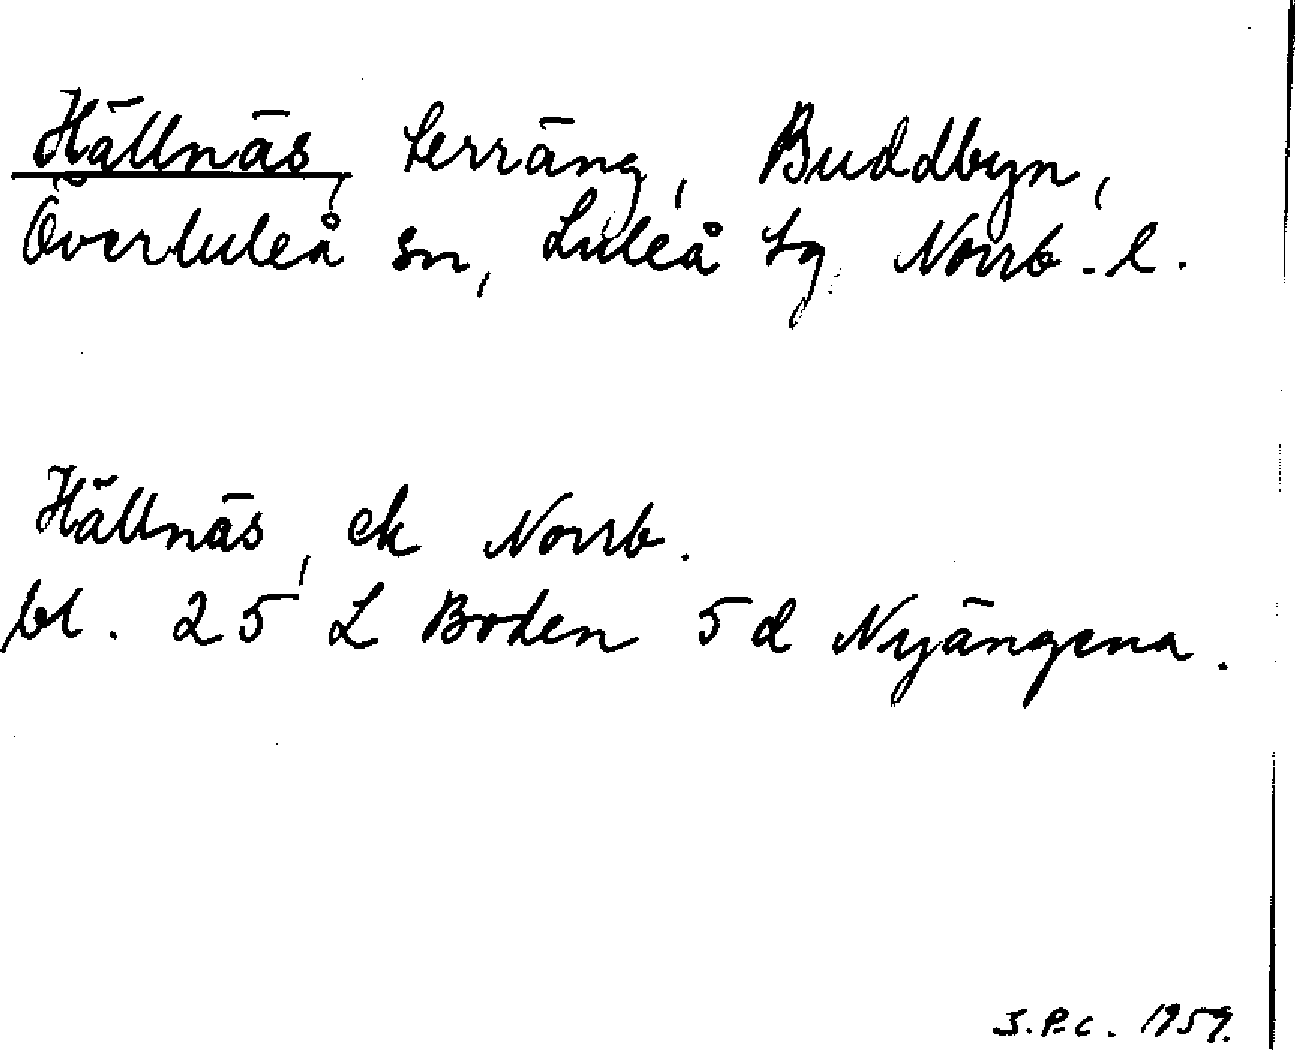 Hällnäs, terräng, Buddbyn,
Överluleå sn, Luleå tg Norrb. l.
Hällnäs, ek Norrb.
bl. 25 L Boden 5 d Nyängena.
S.P.C. 1959.